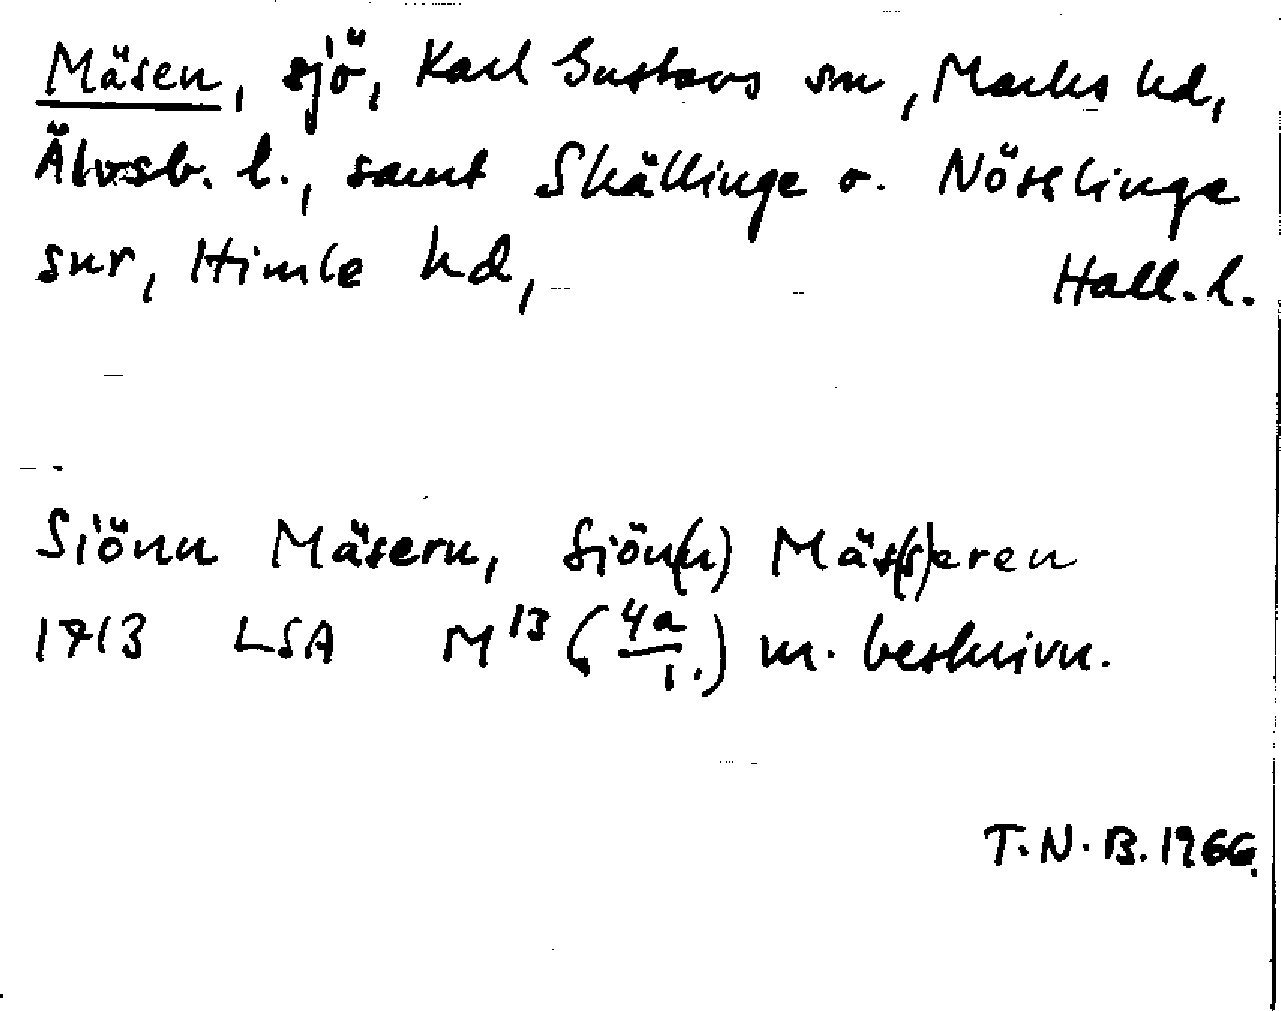 Mäsen, sjö, Karl Gustavs sn, Marks hd,
Älvsb. l., samt Skällinge o. Nösslinge
snr, Himle hd, Hall. l.
Siönn Mäsern, Siön(n) Mäs(s)eren
1713 LSA M13 (4a/1.) m. beskrivn.
T.N.B. 1966.